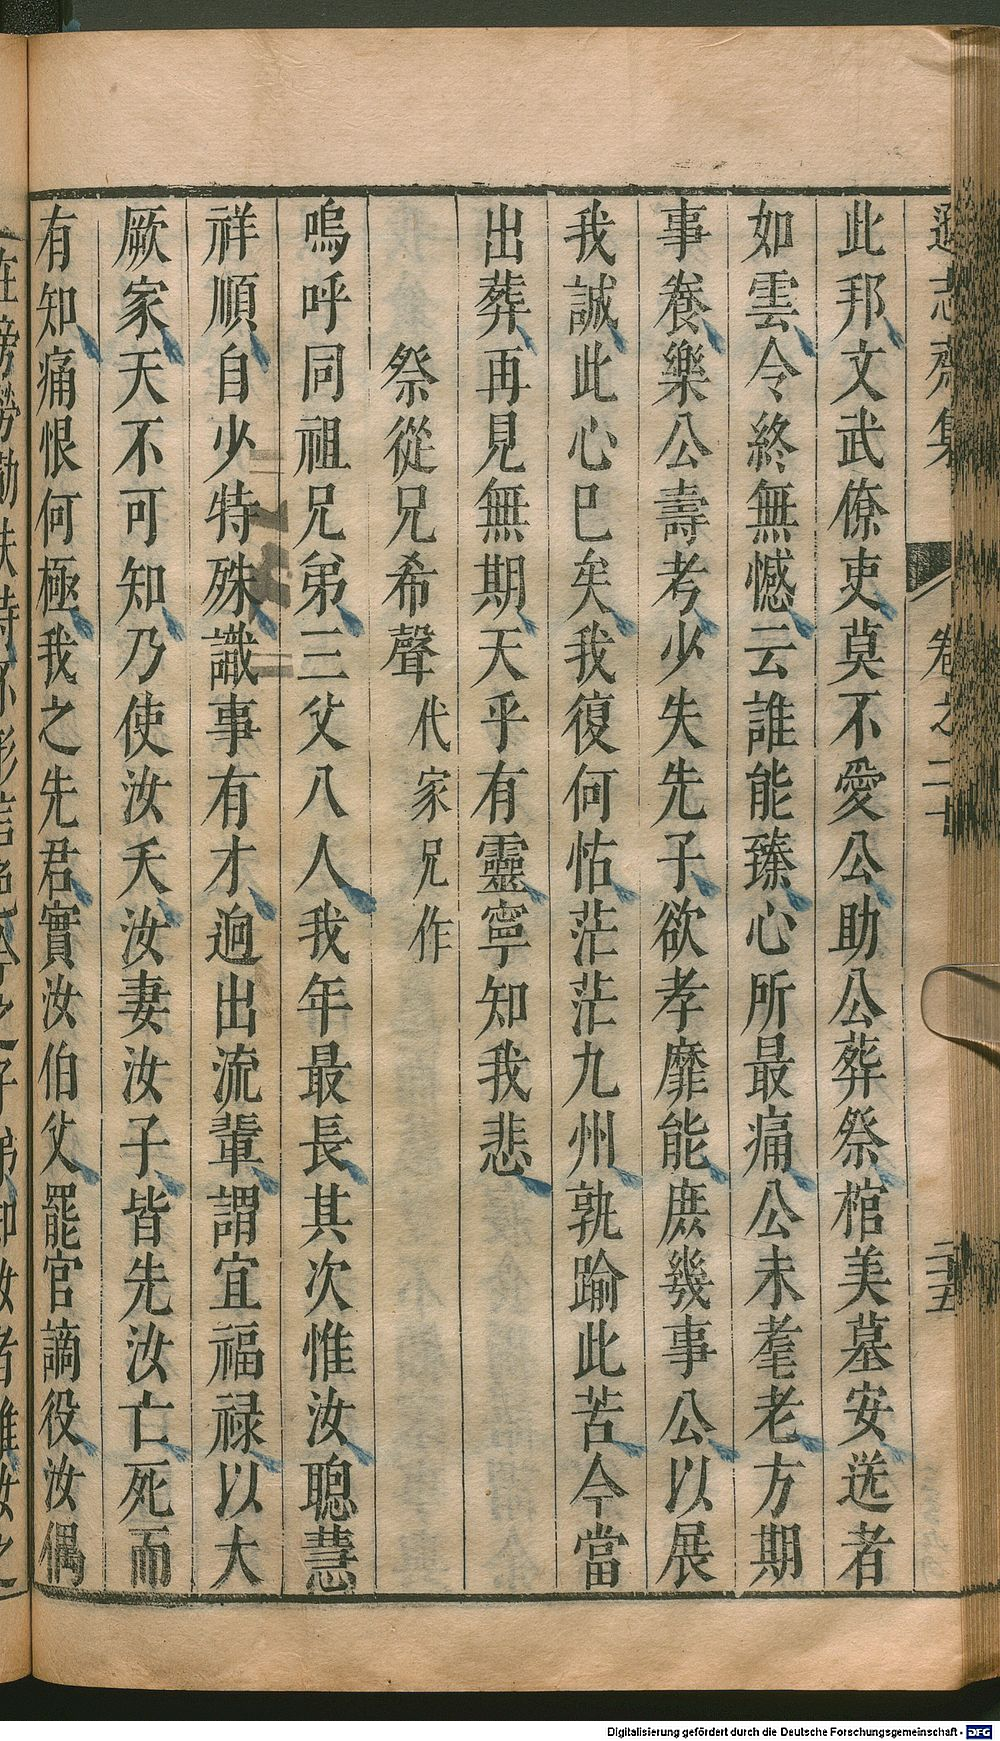 遜志齋集 卷之二十 二十五
此邦文武僚吏莫不愛公助公葬祭棺美墓安送者
如雲令終無憾云誰能臻心所最痛公未耄老方期
事養樂公壽考少失先子欲孝靡能庶幾事公以展
我誠此心已矣我復何怙茫茫九州孰踰此苦今當
出葬再見無期天乎有靈寧知我悲
祭從兄希聲 代家兄作
嗚呼同祖兄弟三父八人我年最長其次惟汝聰慧
祥順自少特殊識事有才逈出流輩謂宜福祿以大
厥家天不可知乃使汝夭汝妻汝子皆先汝亡死而
有知痛恨何極我之先君實汝伯父罷官謫役汝偶
Digitalisierung gefördert durch die Deutsche Forschungsgemeinschaft - DFG